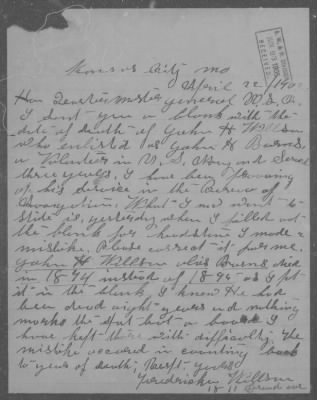 Kansas City Mo
April 22 / 190
Hon Quartermaster general U.S.A.
I sent you a blank with the
date of death of John H Willson
who enlisted as John H Burns
a Volunteer in U.S. and served
three years. I have been
of his service in the Bureau of
What I now want to
state is, yesterday when I filled out
the blank for headstone I made a
mistake. Please correct it for me.
John H Willson alis Burns died
in 1894 instead of 1895 as I put
it in the blank I knew He had
been dead eight years and nothing
marks the spot but a board I
have kept there with difficulty. The
mistake occured in counting back
to year of death; Respt. yours
Fredericka Willson
RECEIVED